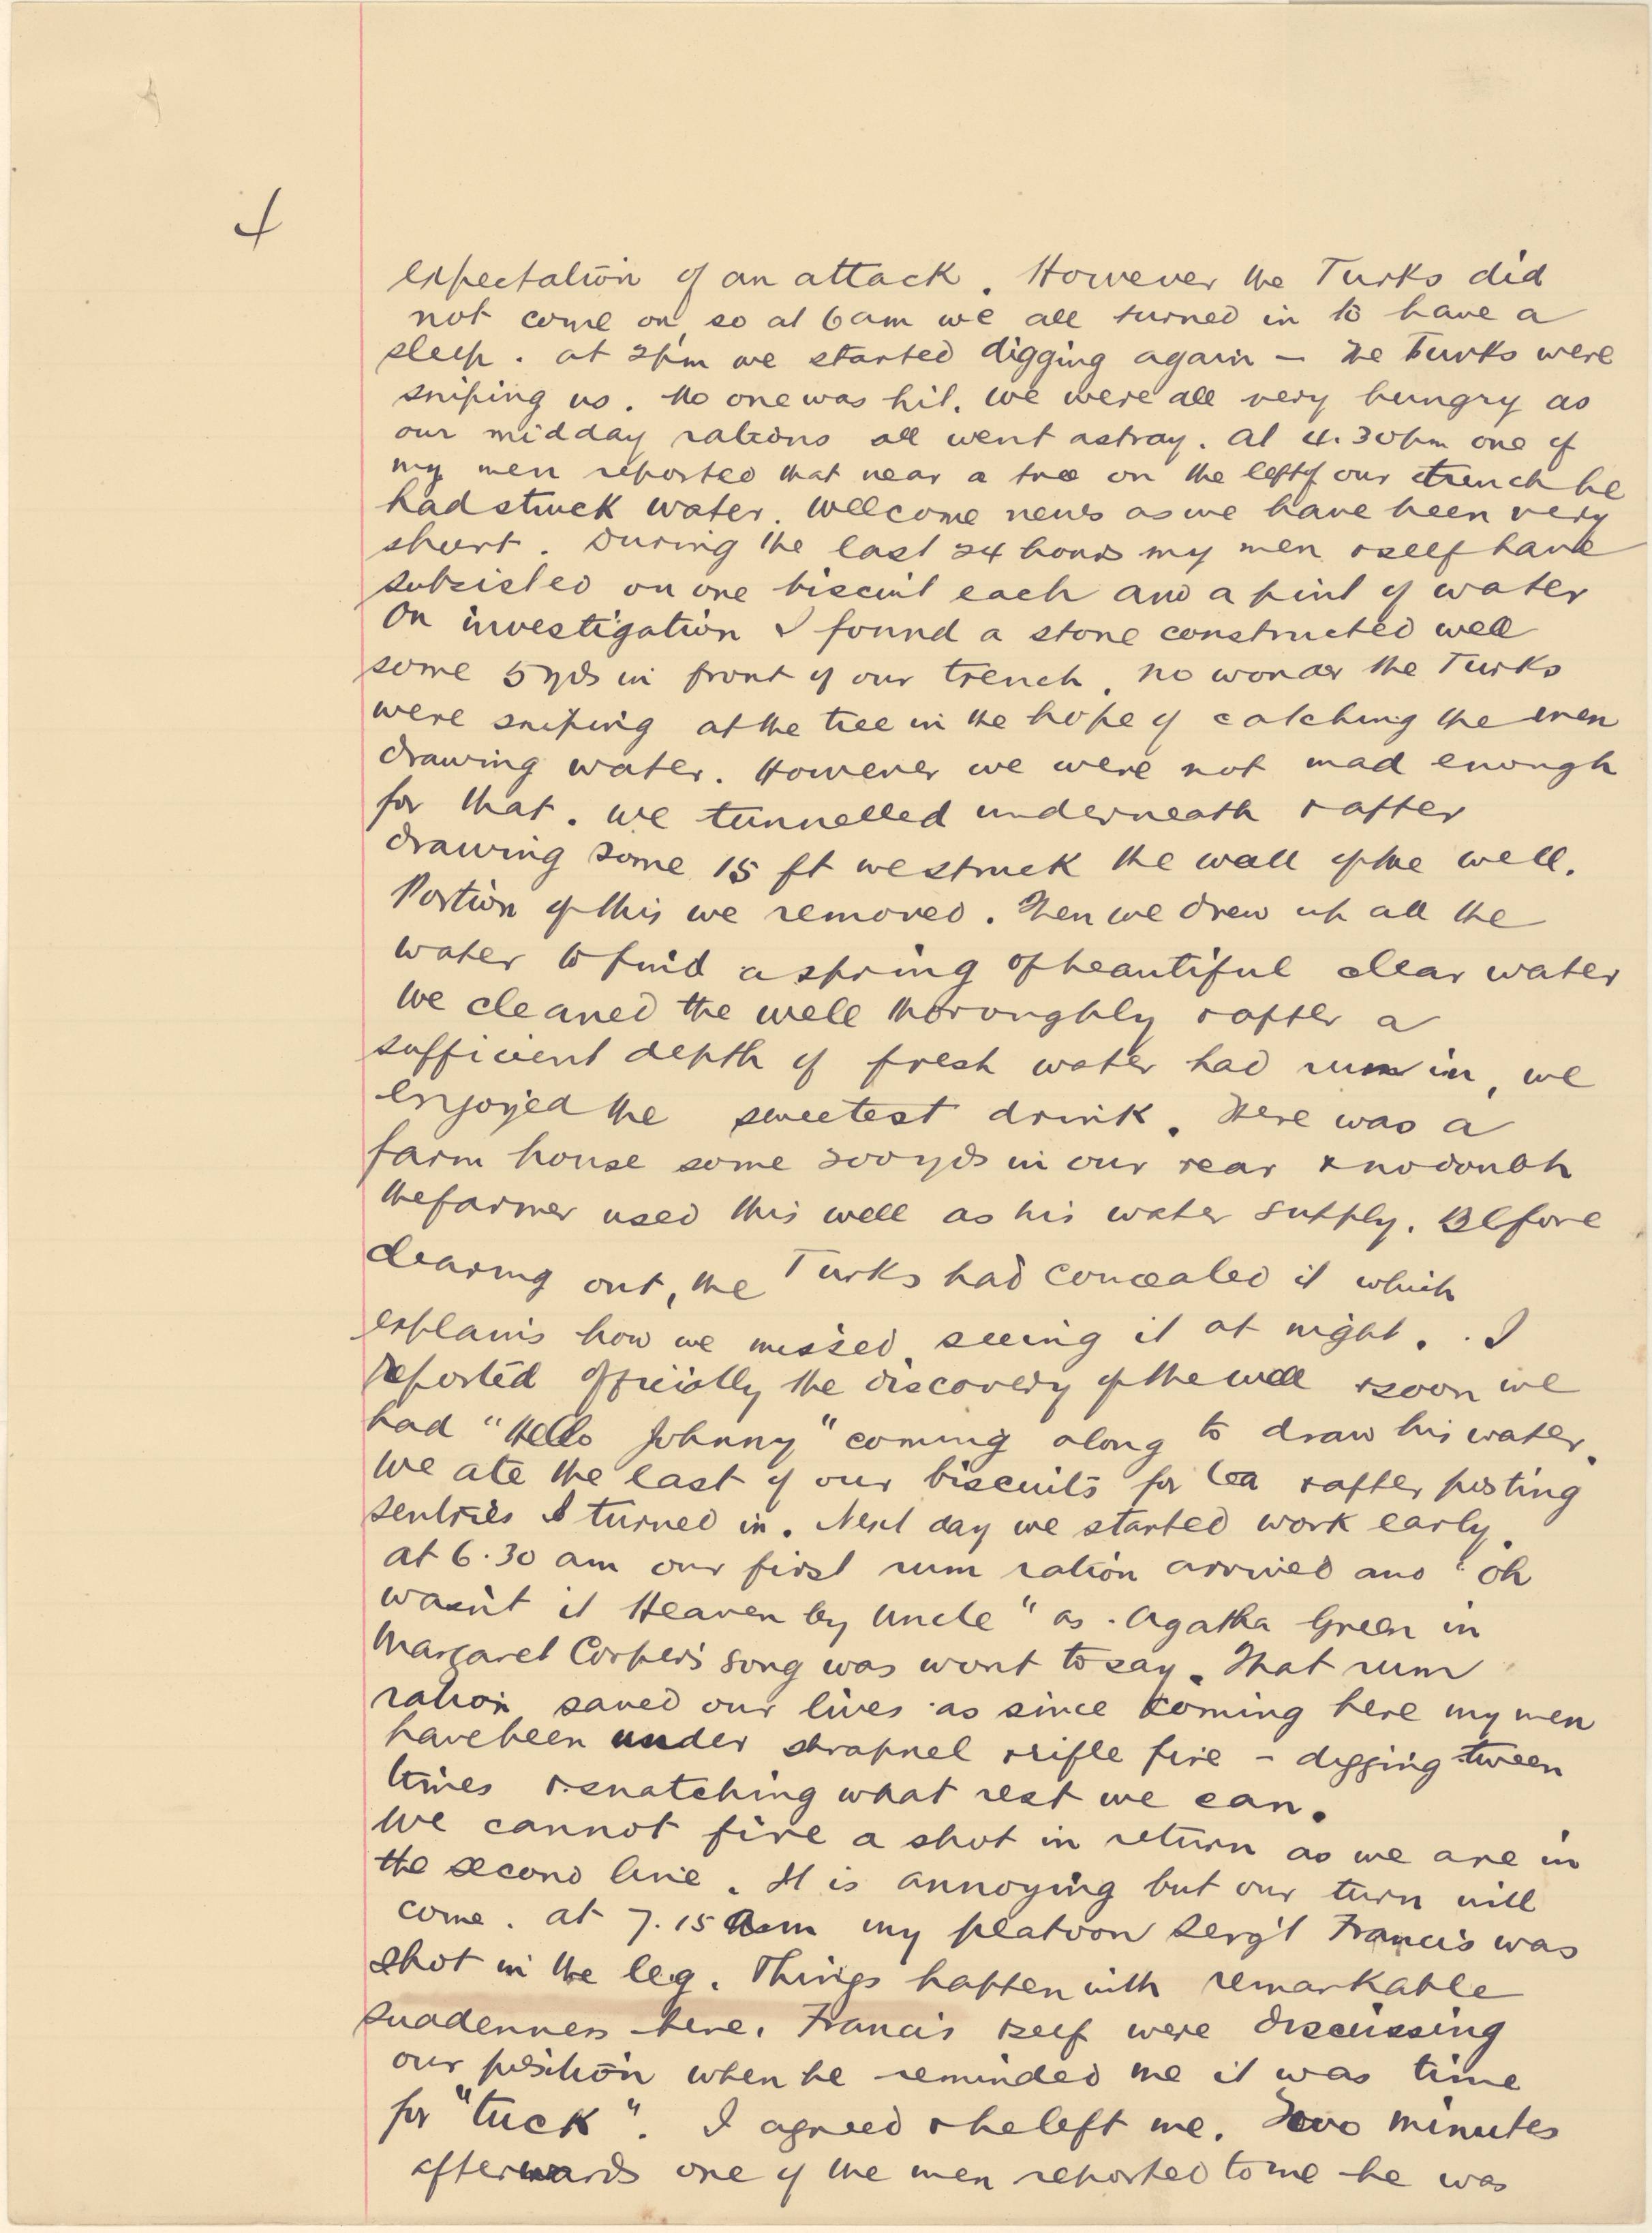 4
expectation of an attack. However the Turks did
not come on so at 6 am we all turned in to have a
sleep. at 2pm we started digging again – The Turks were
sniping us. No one was hit. We were all very hungry as
our midday rations all went astray. At 4.30pm one of
my men reported that near a tree on the left of our trench he
had struck water. Wellcome news as we have been very
short. During the last 24 hours my men & self have
subsisted on one biscuit each and a pint of water
On investigation I found a stone constructed well
some 5 yds in front of our trench, no wonder the Turks
were sniping at the tree in the hope of catching the men
drawing water. However we were not mad enough
for that. We tunnelled underneath & after
drawing some 15 ft we struck the wall of the well.
Portion of this we removed. Then we drew up all the
water to find a spring of beautiful clear water
We cleaned the well thoroughly & after a
sufficient depth of fresh water had run in, we
enjoyed the sweetest drink. There was a
farm house some 300 yds in our rear & no doubt
the farmer used this well as his water supply. Before
clearing out, the Turks had concealed it which
explains how we missed seeing it at night. I
reported officially the discovery of the well & soon we
had "Hello Johnny" coming along to draw his water.
We ate the last of our biscuits for tea & after posting
sentries I turned in. Next day we started work early.
at 6.30 am our first rum ration arrived and "oh
wasn't it Heaven by Uncle" as Agatha Green in
Margaret Cooper's song was wont to say. That rum
ration saved our lives as since coming here my men
have been under shrapnel & rifle fire – digging tween
times & snatching what rest we can.
We cannot fire a shot in return as we are in
the second line. It is annoying but our turn will
come. at 7.15 am my platoon Serg't Francis was
shot in the leg. Things happen with remarkable
suddenness here. Francis & self were discussing
our position when he reminded me it was time
for "tuck". I agreed & he left me. Two minutes
afterwards one of the men reported to me he was